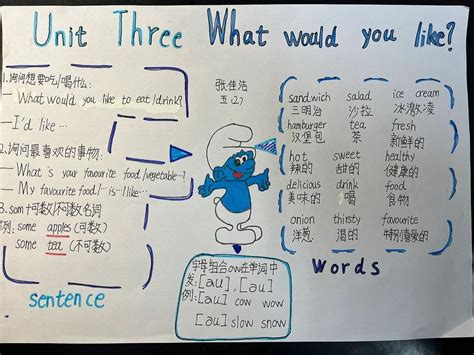 Unit Three What would you like?
1.询问想要吃/喝什么:
— What would you like to eat /drink?
—I'd like …
2.询问最喜欢的事物:
— What's your favourite food /vegetable…?
— My favourite food /… is… I like…
3. som+可数/不可数名词
例. some apples(可数)
some tea (不可数)
sentence
张佳洁
五.(2)
字母组合ow在单词中
发:[au],[au]
例:[au] cow wow
[au] slow snow
sandwich salad ice cream
三明治 沙拉 冰激凌
hamburger tea fresh
汉堡包 茶 新鲜的
hot sweet healthy
辣的 甜的 健康的
delicious drink food
美味的 喝 食物
onion thisty favourite
洋葱 渴的 特别喜爱的
Words